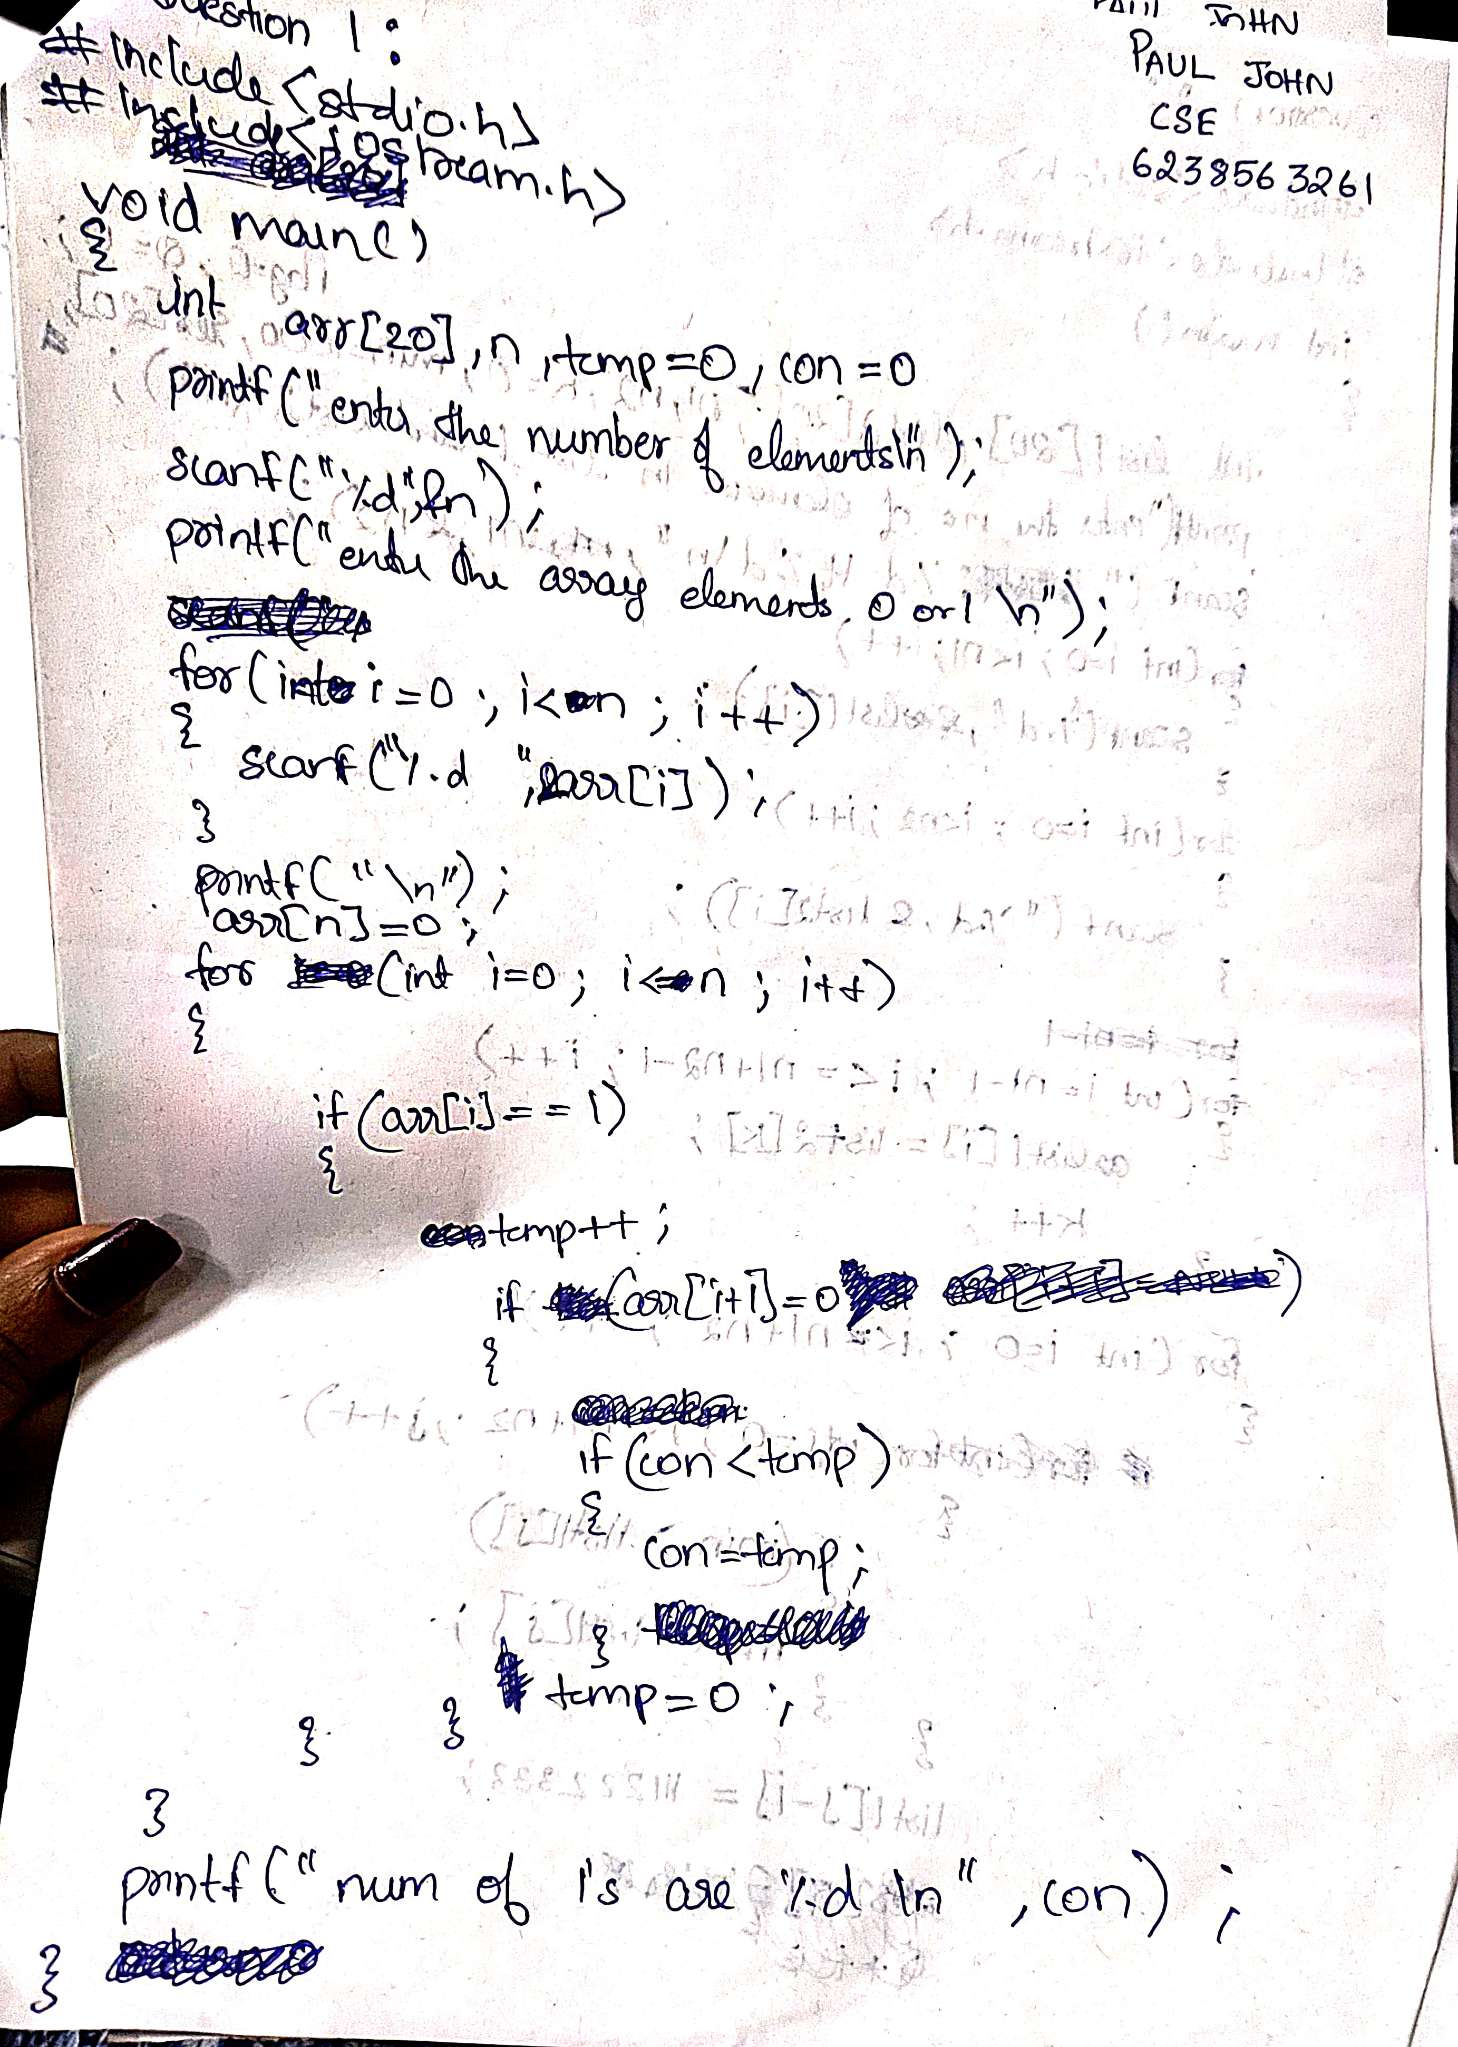 Question 1 :
PAUL JOHN
PAUL JOHN
CSE
6238563261
#include <stdio.h>
#include <iostream.h>
void main()
{
int arr[20], n, temp=0, con=0
printf("enter the number of elements\n");
scanf("%d",&n);
printf("enter the array elements 0 or 1 \n");
for(int i=0; i<n; i++)
{
scanf("%d ",&arr[i]);
}
printf("\n");
arr[n]=0;
for (int i=0; i<n; i++)
{
if(arr[i]==1)
{
temp++;
if (arr[i+1]=0)
{
if(con<temp)
{
con=temp;
}
temp=0;
}
}
}
printf("num of 1's are %d \n", con);
}